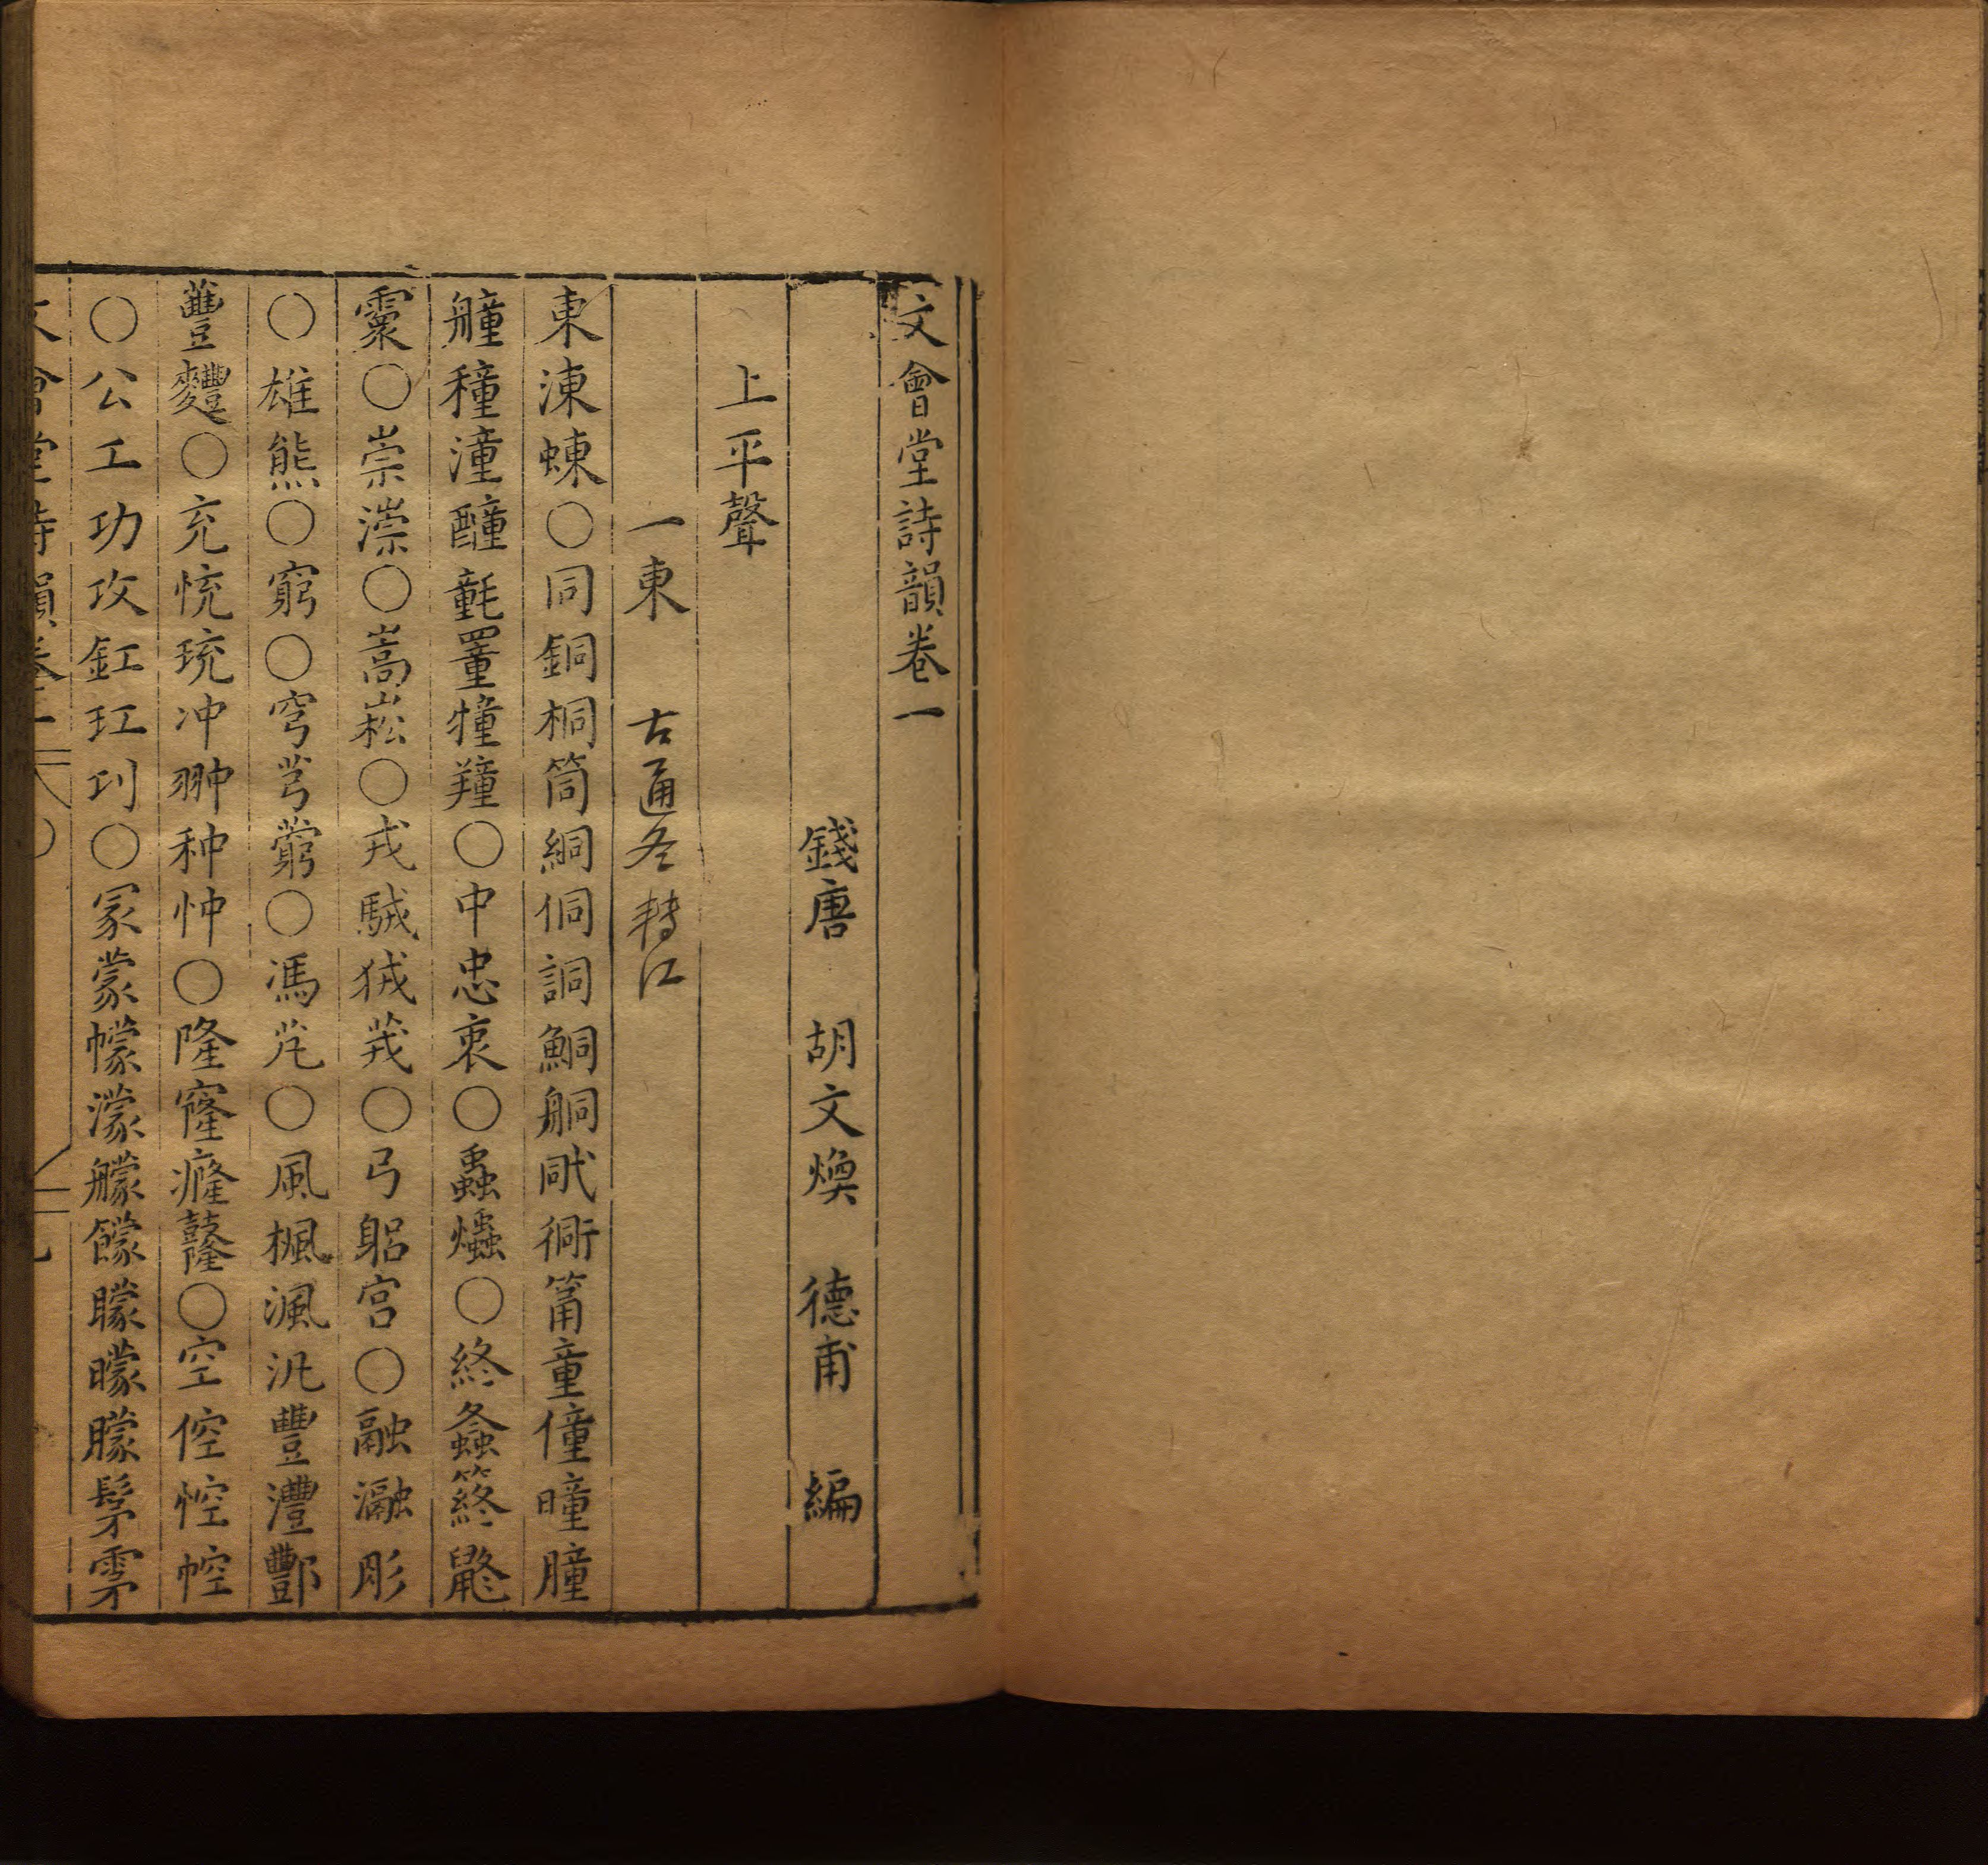 文會堂詩韻卷一
錢唐 胡文煥 德甫 編
上平聲
一東 古通冬轉江
東涷蝀○同銅桐筒絧侗詷鮦舸衕筩童僮曈朣
艟穜潼醲罿犝羵○中忠衷○蟲爞○終螽
○崇漴○嵩崧○戎駥狨茙○弓躳宮○融瀜肜
○雄熊○窮○穹芎藭○馮芃○風楓渢汎豐灃酆
蘴麷○充忱珫冲翀种忡○隆窿癃○空倥悾㤟
○公工功攻釭玒㓚○冡蒙幪濛艨饛矇曚朦髳雺
文會堂詩韻卷一